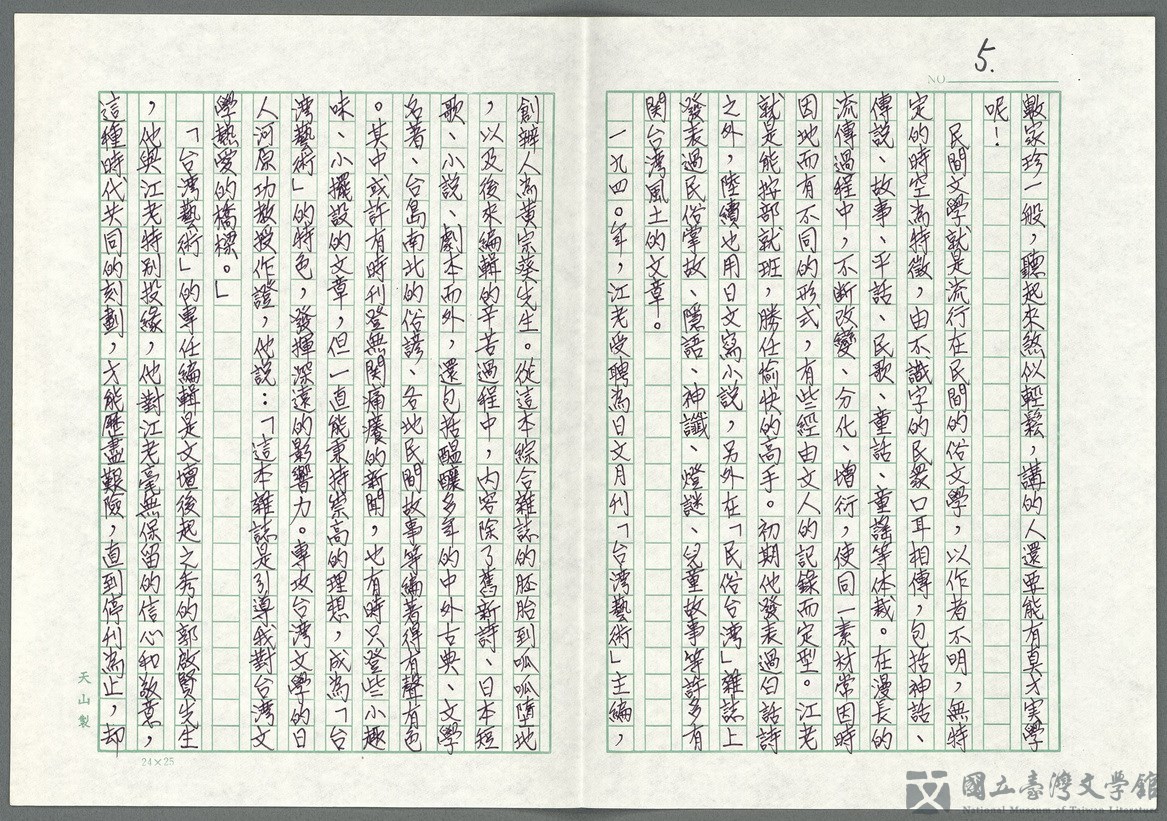 5.
NO
數家珍一般，聽起來煞似輕鬆，講的人還要能有真才實學
呢！
民間文學就是流行在民間的俗文學，以作者不明，無特
定的時空為特徵，由不識字的民眾口耳相傳，包括神話、
傳說、故事、平話、民歌、童話、童謠等体裁。在漫長的
流傳過程中，不斷改變、分化、增衍，使同一素材常因時
因地而有不同的形式，有些經由文人的記錄而定型。江老
就是能按部就班，勝任愉快的高手。初期他發表過白話詩
之外，陸續也用日文寫小說，另外在「民俗台湾」雜誌上
發表過民俗掌故、隱語、神讖、燈謎、兒童故事等許多有
関台湾風土的文章。
一九四○年，江老受聘為日文月刊「台湾藝術」主編，
創辦人為黄宗葵先生。從這本綜合雜誌的胚胎到呱呱墮地
，以及後來編輯的辛苦過程中，内容除了舊新詩、日本短
歌、小說、劇本而外，還包括醞釀多年的中外古典、文學
名著、台島南北的俗諺、各地民間故事等編著得有聲有色
。其中或許有時刊登無関痛癢的新聞，也有時只登些小趣
味、小擺設的文章，但一直能秉持崇高的理想，成為「台
湾藝術」的特色，發揮深遠的影響力。專攻台湾文學的日
人河原功教授作證，他說：「這本雜誌是引導我對台湾文
學熱愛的橋樑。」
「台湾藝術」的專任編輯是文壇後起之秀的郭啟賢先生
，他與江老特別投緣，他對江老毫無保留的信心和敬意，
這種時代共同的刻劃，才能歷盡艱險，直到停刊為止，却
天山製
24×25
國立臺灣文學館
National Museum of Taiwan Literature